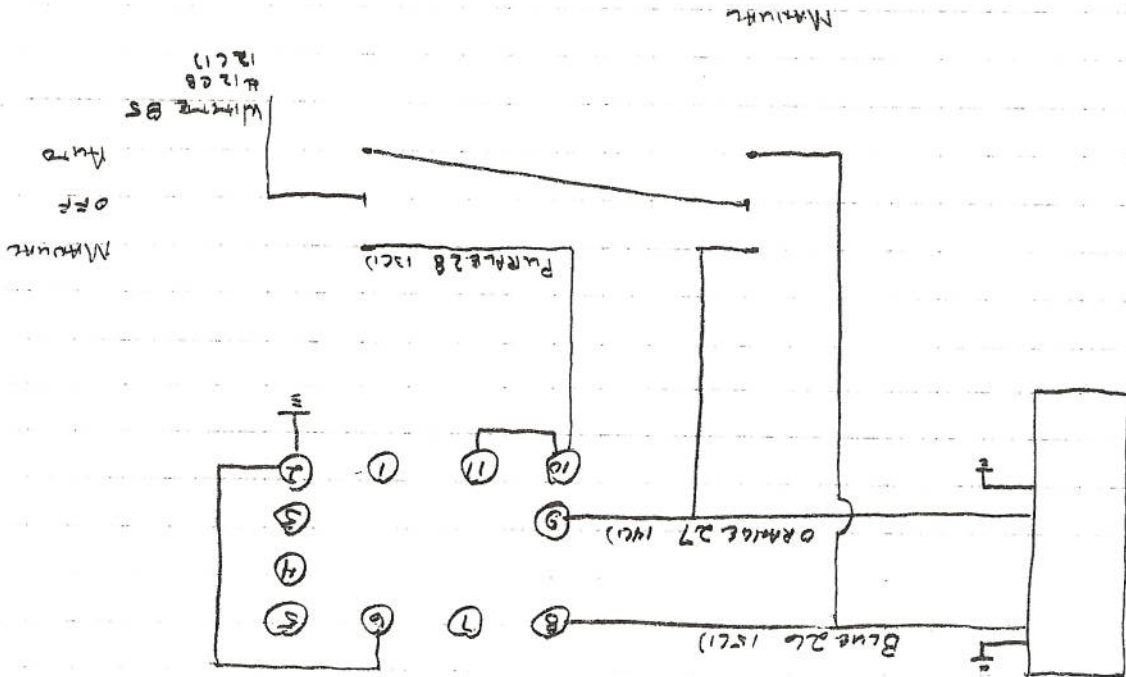 BLUE 26 15(1)
8 7 6 5
4
ORANGE 27 14(1)
9 3
10 11 1 2
PURPLE 28 13(1)
MANUAL
OFF
AUTO
WHITE 25
#12 CB
12(1)
MANUAL